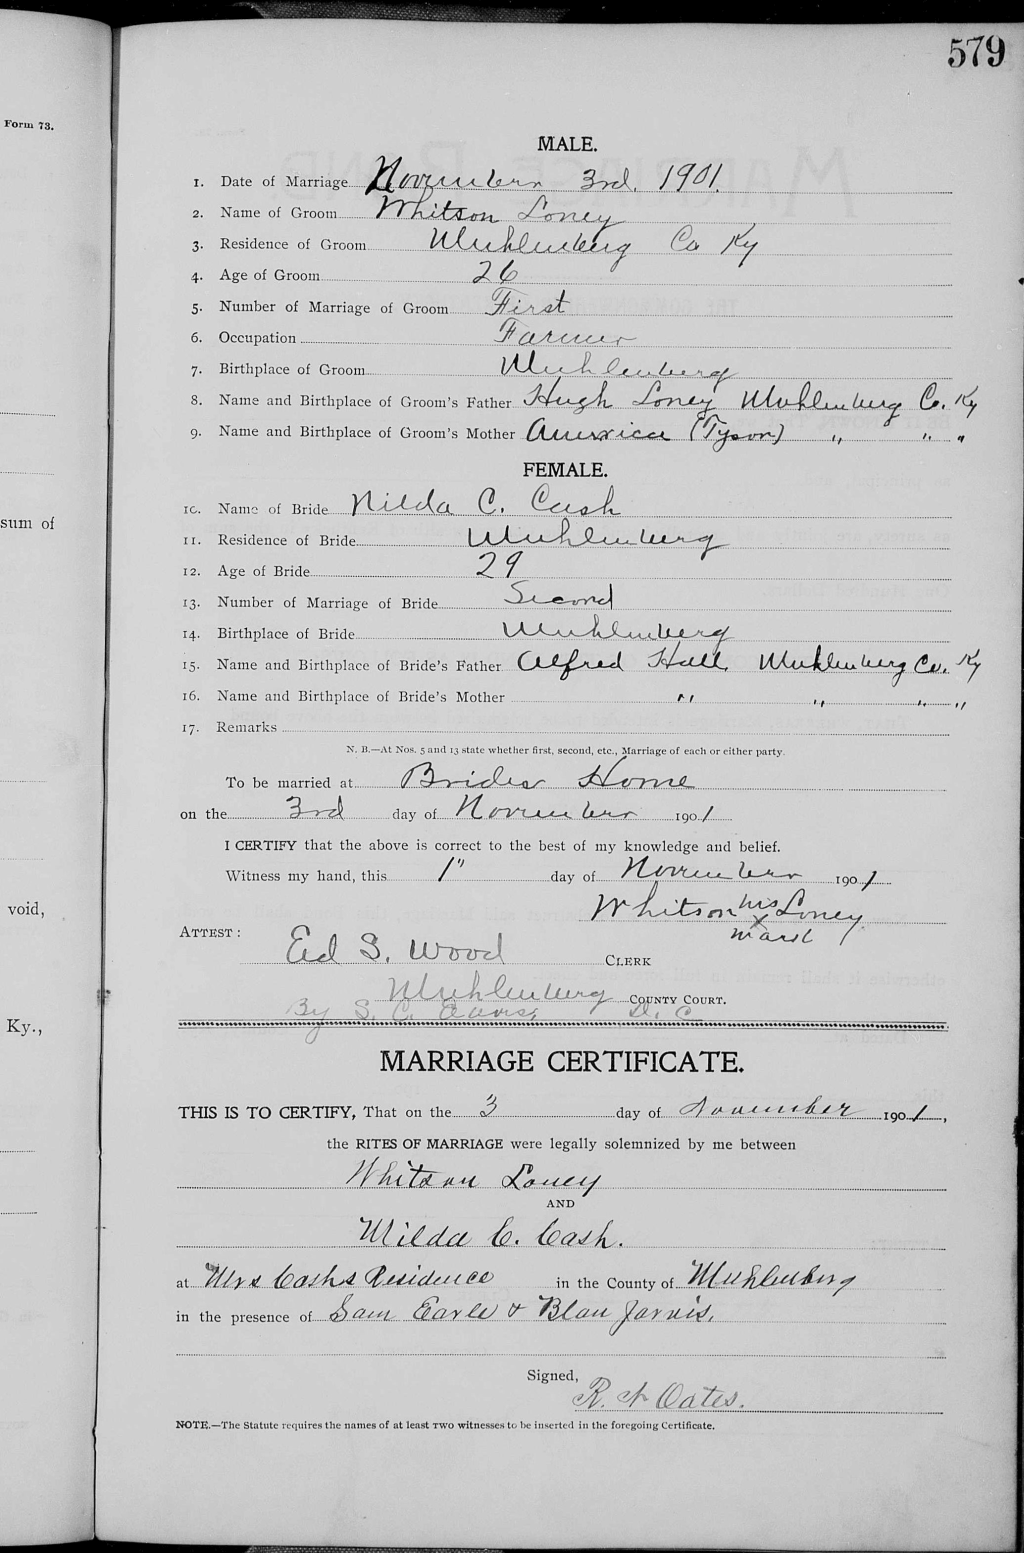 579
Form 73.
MALE.
1. Date of Marriage November 3rd. 1901.
2. Name of Groom Whitson Loney
3. Residence of Groom Muhlenberg Co Ky
4. Age of Groom 26
5. Number of Marriage of Groom First
6. Occupation Farmer
7. Birthplace of Groom Muhlenberg
8. Name and Birthplace of Groom's Father Hugh Loney Muhlenberg Co. Ky
9. Name and Birthplace of Groom's Mother America (Tyson) " " "
FEMALE.
10. Name of Bride Nilda C. Cash
11. Residence of Bride Muhlenberg
12. Age of Bride 29
13. Number of Marriage of Bride Second
14. Birthplace of Bride Muhlenberg
15. Name and Birthplace of Bride's Father Alfred Hall Muhlenberg Co. Ky
16. Name and Birthplace of Bride's Mother " " " "
17. Remarks
N. B.—At Nos. 5 and 13 state whether first, second, etc., Marriage of each or either party.
To be married at Brides Home
on the 3rd day of November 1901
I CERTIFY that the above is correct to the best of my knowledge and belief.
Witness my hand, this 1" day of November 1901
Whitson his x mark Loney
ATTEST: Ed S. Wood CLERK
Muhlenberg COUNTY COURT.
By S. C. Davis, D. C
MARRIAGE CERTIFICATE.
THIS IS TO CERTIFY, That on the 3 day of November 1901,
the RITES OF MARRIAGE were legally solemnized by me between
Whitson Loney
AND
Milda C. Cash.
at Mrs Cashs Residence in the County of Muhlenberg
in the presence of Sam Earle & Blan Jarvis,
Signed,
R. N Oates.
NOTE.—The Statute requires the names of at least TWO witnesses to be inserted in the foregoing Certificate.
sum of
void,
Ky.,